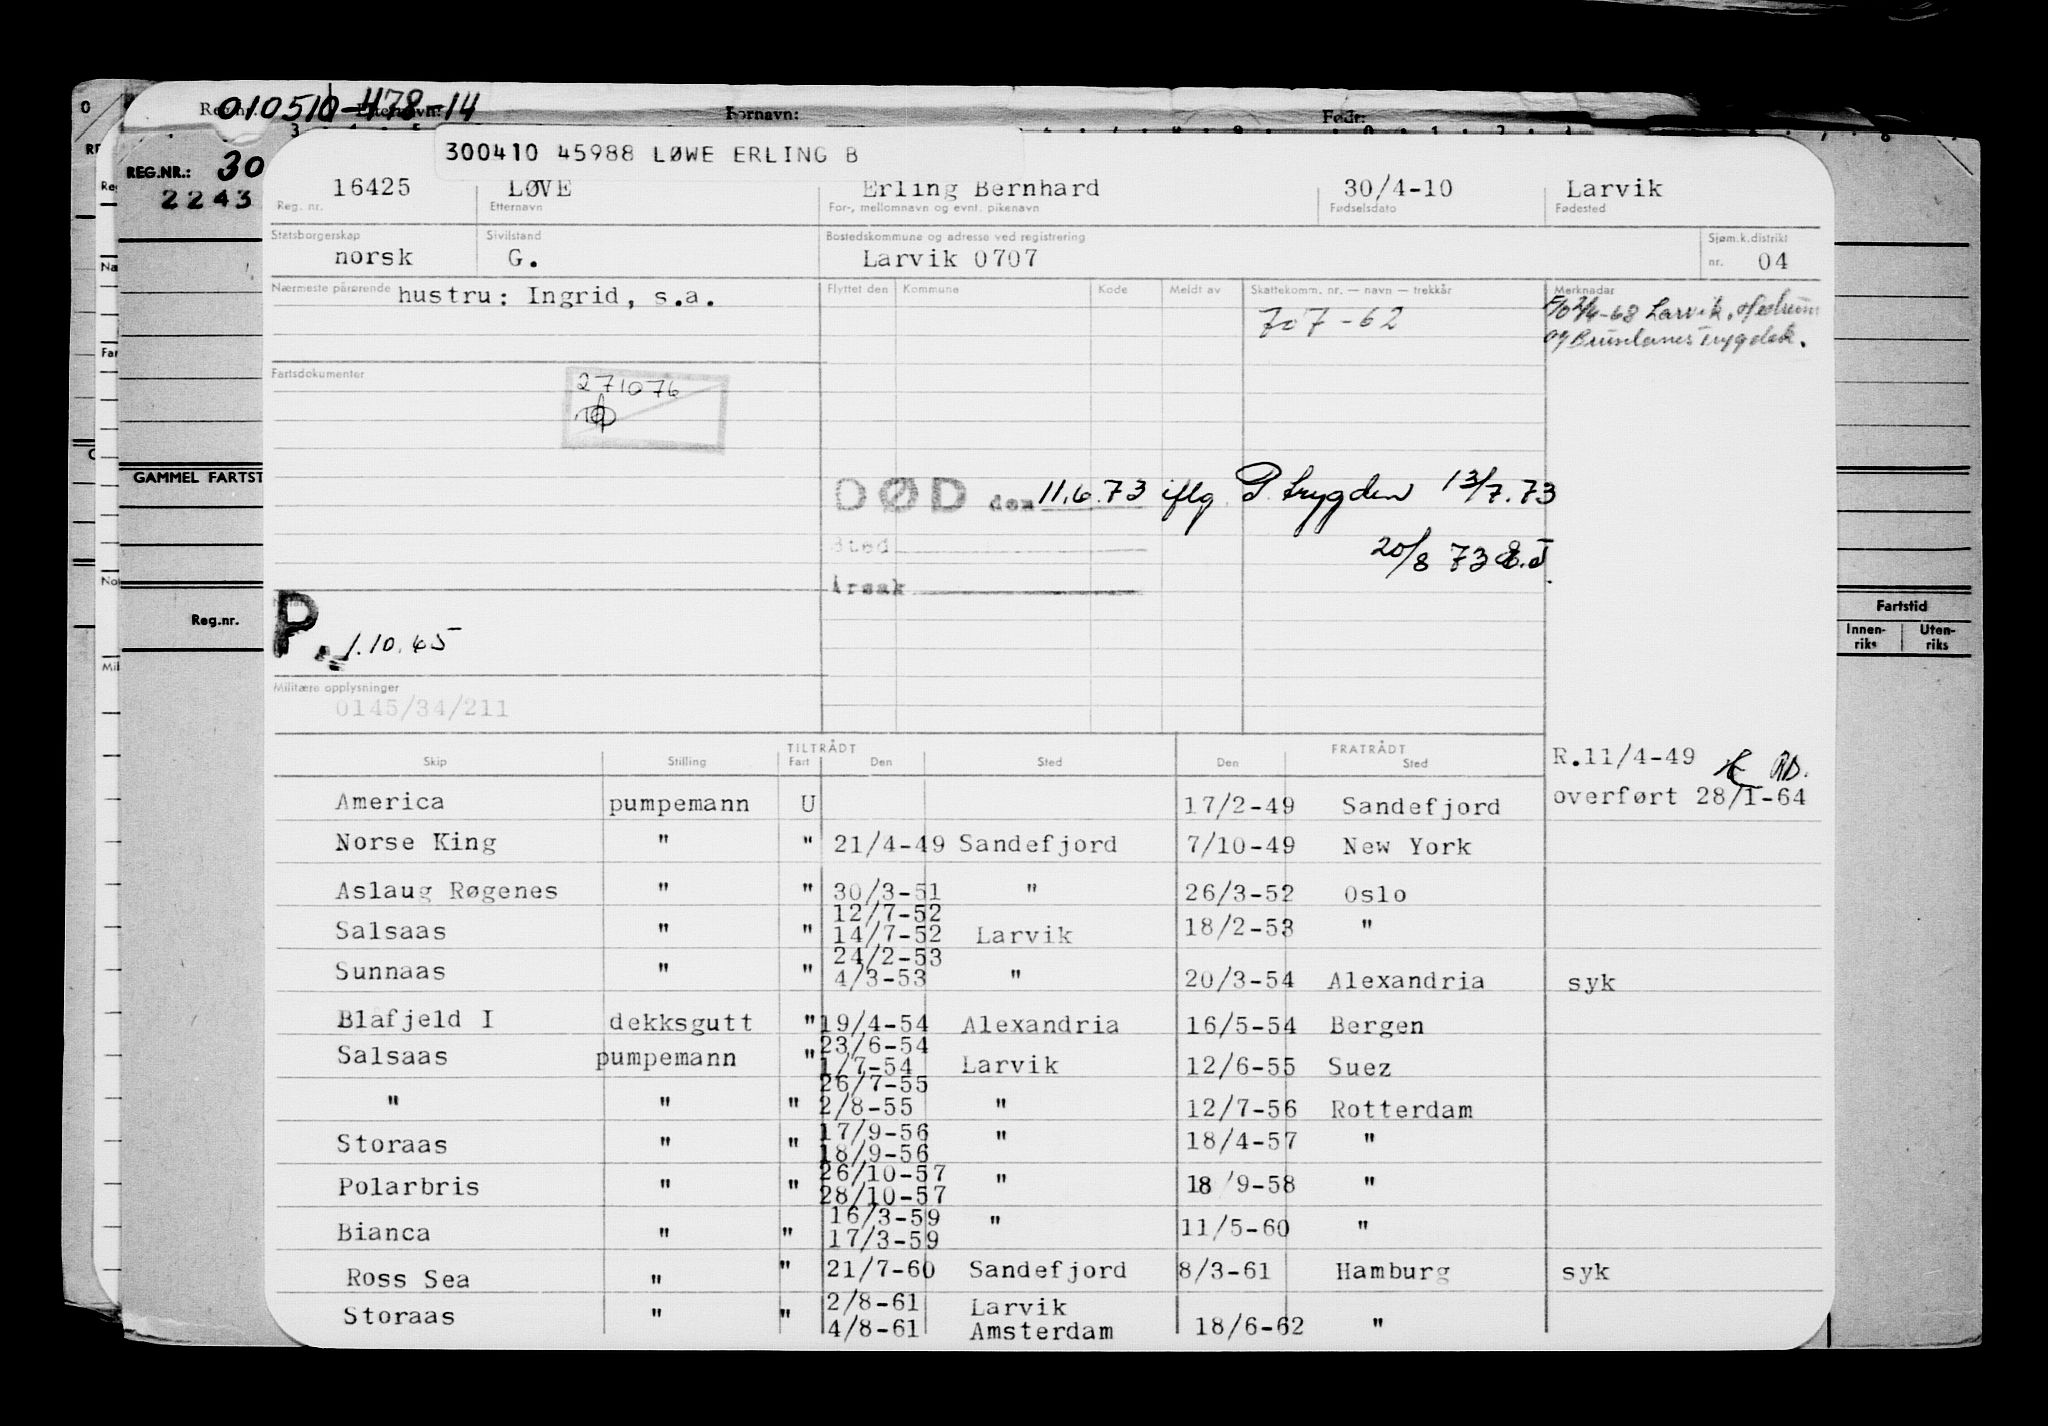 010510-478-14
Fornavn: Født:
REG.NR.: 30
2243
GAMMEL FARTST
Reg.nr.
Fartstid
Innen-riks Uten-riks
300410 45988 LØWE ERLING B
16425 LØVE Erling Bernhard 30/4-10 Larvik
Reg. nr. Etternavn For-, mellomnavn og evnt. pikenavn Fødselsdato Fødested
Statsborgerskap Sivilstand Bostedskommune og adresse ved registrering Sjøm.k.distrikt
norsk G. Larvik 0707 nr. 04
Nærmeste pårørende hustru: Ingrid, s.a. Flyttet den Kommune Kode Meldt av Skattekomm. nr. — navn — trekkår Merknader
707-62
Larvik, Hedrum
og Brunlanes Trygdek.
Fartsdokumenter
271076
DØD den 11.6.73 iflg. P. trygden 13/7.73
Sted
20/8 73
Årsak
P. 1.10.45
Militære opplysninger
0145/34/211
TILTRÅDT FRATRÅDT
Skip Stilling Fart Den Sted Den Sted
R.11/4-49 RD.
overført 28/1-64
America pumpemann U 17/2-49 Sandefjord
Norse King " " 21/4-49 Sandefjord 7/10-49 New York
Aslaug Røgenes " " 30/3-51 " 26/3-52 Oslo
12/7-52
Salsaas " " 14/7-52 Larvik 18/2-53 "
24/2-53
Sunnaas " " 4/3-53 " 20/3-54 Alexandria syk
Blafjeld I dekksgutt " 19/4-54 Alexandria 16/5-54 Bergen
23/6-54
Salsaas pumpemann " 1/7-54 Larvik 12/6-55 Suez
26/7-55
" " " 2/8-55 " 12/7-56 Rotterdam
17/9-56
Storaas " " 18/9-56 " 18/4-57 "
26/10-57
Polarbris " " 28/10-57 " 18/9-58 "
16/3-59
Bianca " " 17/3-59 " 11/5-60 "
Ross Sea " " 21/7-60 Sandefjord 8/3-61 Hamburg syk
2/8-61 Larvik
Storaas " " 4/8-61 Amsterdam 18/6-62 "